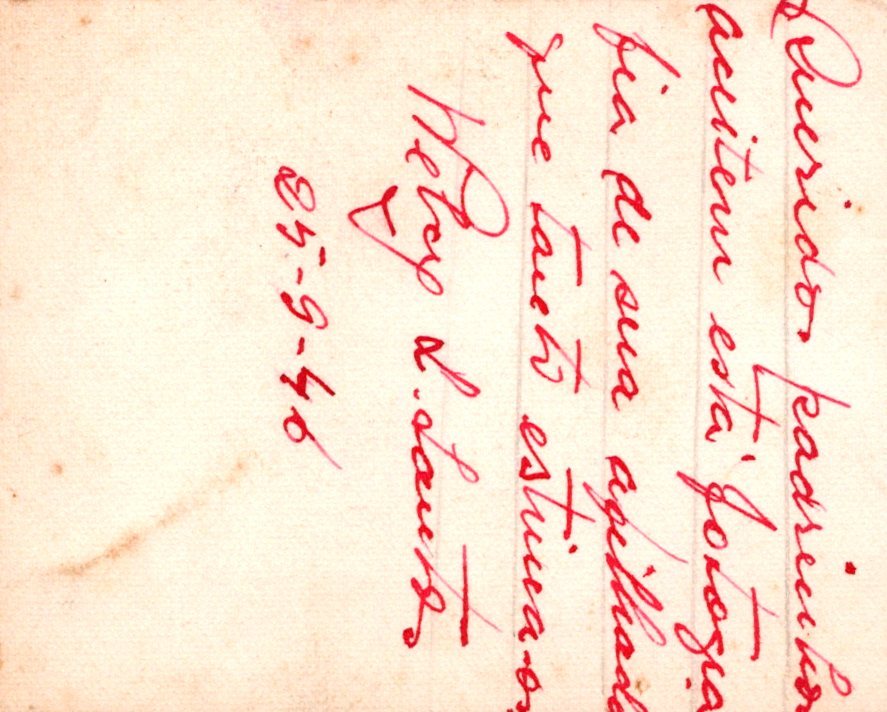 Queridos padrinhos
aceitem esta fotogra
fia de sua afilhada
que tanto estima-os
L. Santos
25-9-46